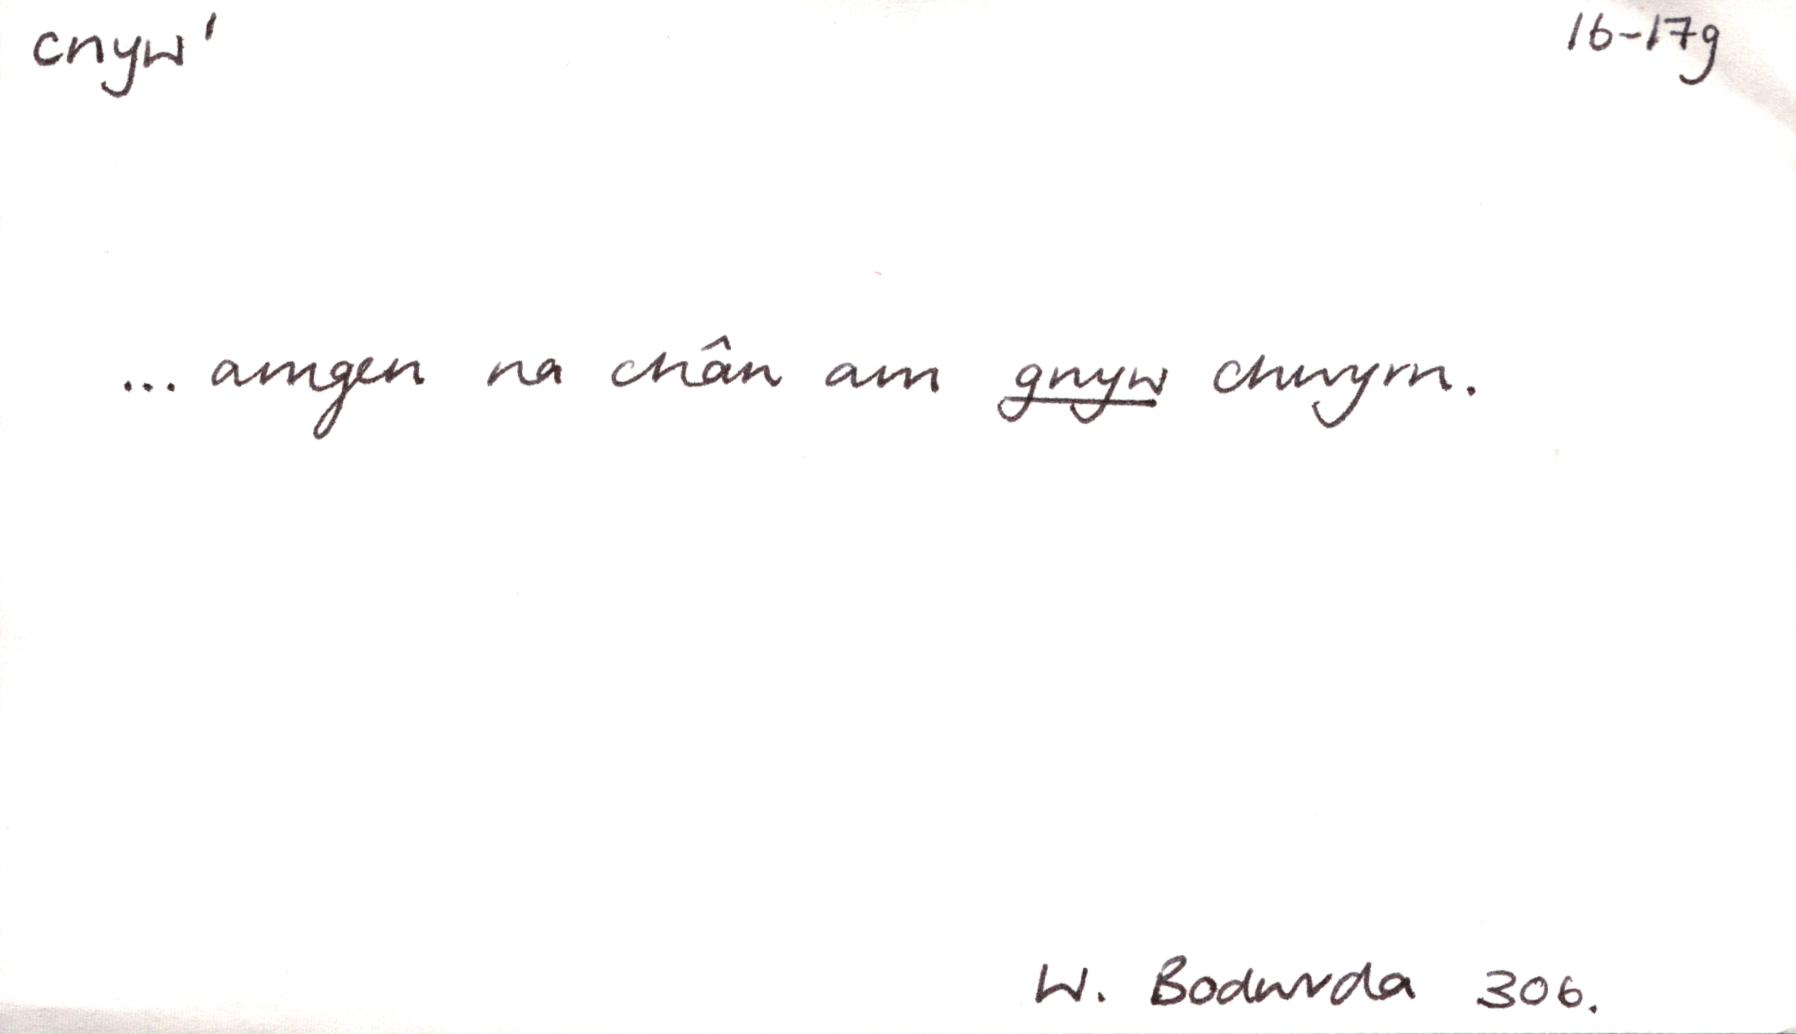 cnyw¹ 16-17g
... amgen na chân am gnyw chwyrn.
W. Bodwrda 306.